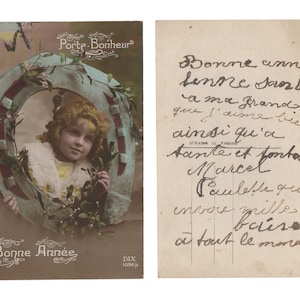 Porte-Bonheur
Bonne Année
DIX
Bonne ann
bonne sant
à ma grand
que j'aime bi
ainsi qu'a
tante et tonton
Marcel
Paulette qu
envoie mille
baise
à tout le monde